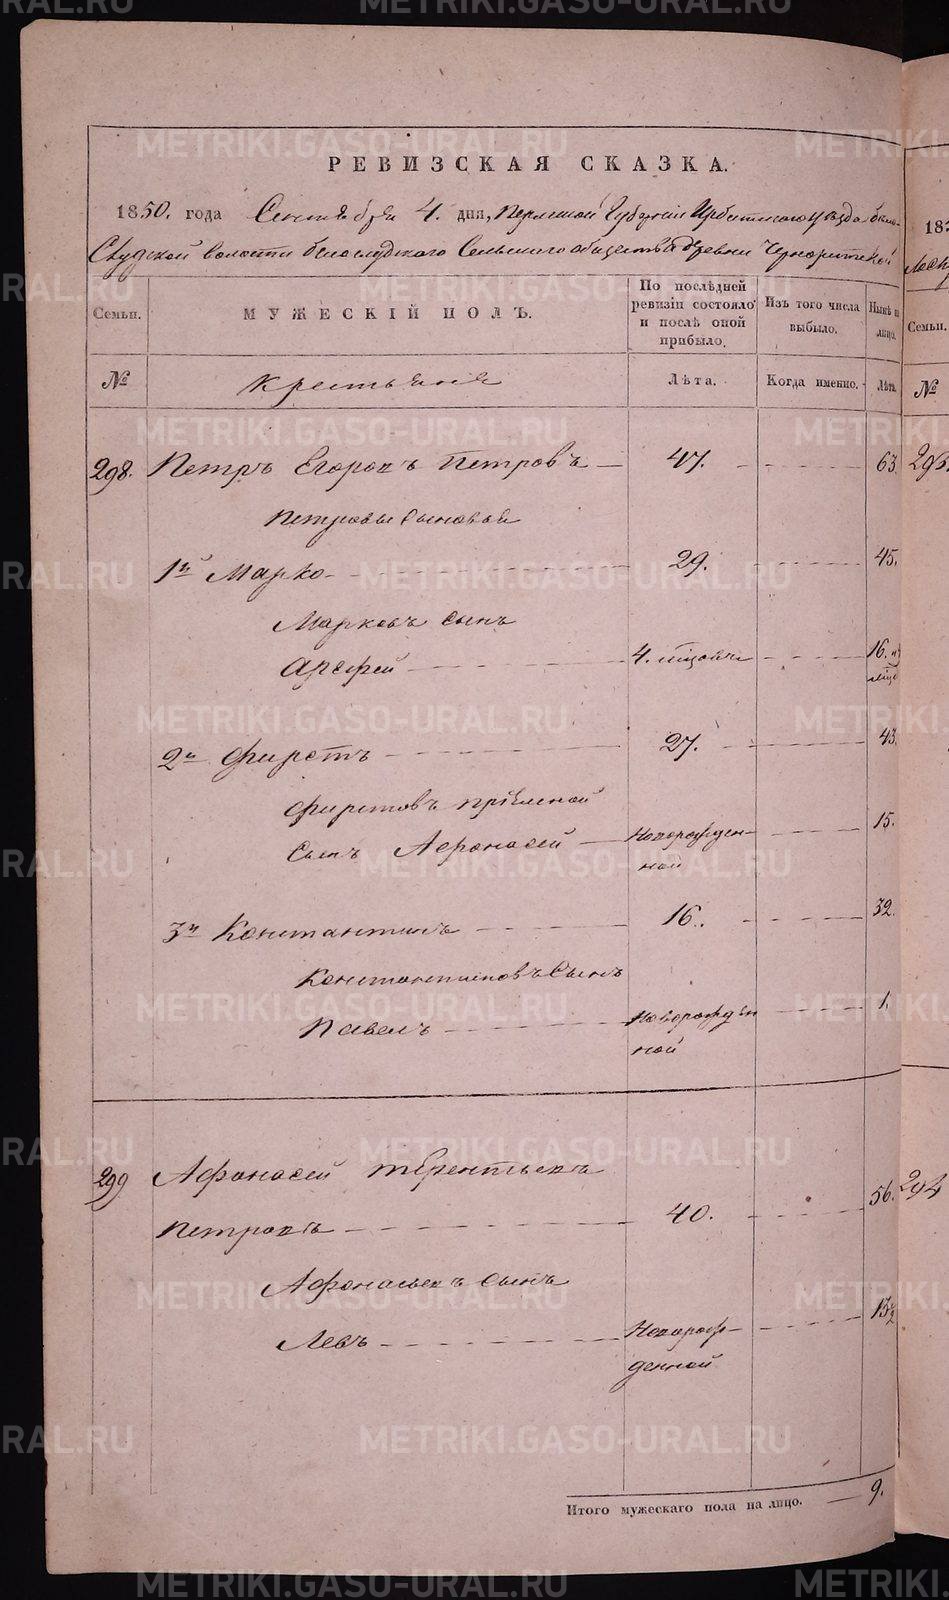 РЕВИЗСКАЯ СКАЗКА.
1850. года Сентября 4. дня, Пермской Губернии Ирбитского уезда Бело-
Слудской волости Белослудского Сельского общества деревни Чернорицкой
Семьи.
МУЖЕСКІЙ ПОЛЪ.
По послѣдней ревизіи состояло и послѣ оной прибыло.
Изъ того числа выбыло.
Нынѣ на лицо.
№
Крестьяне
Лѣта.
Когда именно.
Лѣта.
298. Петръ Егоровъ Петровъ 47. 63.
Петровы сыновья
1й Марко 29. 45.
Марковъ сынъ
Арефей 4. мѣсовъ 16.
2й Фирстъ 27. 43.
Фирстовъ пріемной
Сынъ Афонасей Новорожден-ной 15.
3й Константинъ 16. 32.
Константиновъ Сынъ
Павелъ Новорожденной 1.
299 Афонасей Терентьевъ
Петровъ 40. 56.
Афонасьевъ сынъ
Левъ Новорож-денной 13½
Итого мужескаго пола на лицо. 9.
185
Семьи.
№
293.
294
METRIKI.GASO-URAL.RU